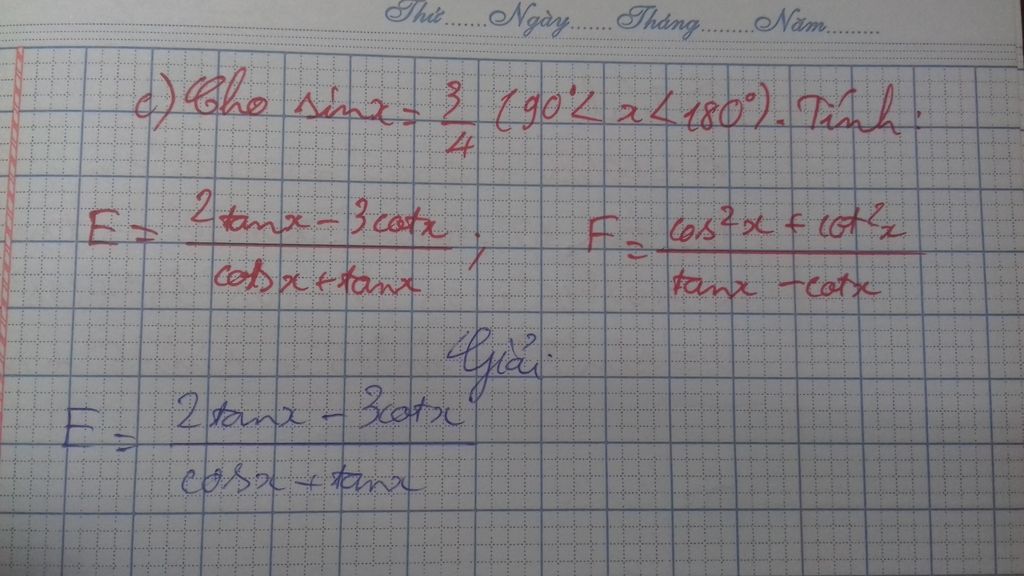 Thứ...... Ngày....... Tháng......... Năm.........
c) Cho sinx = 3/4 (90° < x < 180°). Tính:
E = (2tanx - 3cotx)/(cosx + tanx) ; F = (cos²x + cot²x)/(tanx - cotx)
Giải
E = (2tanx - 3cotx)/(cosx + tanx)